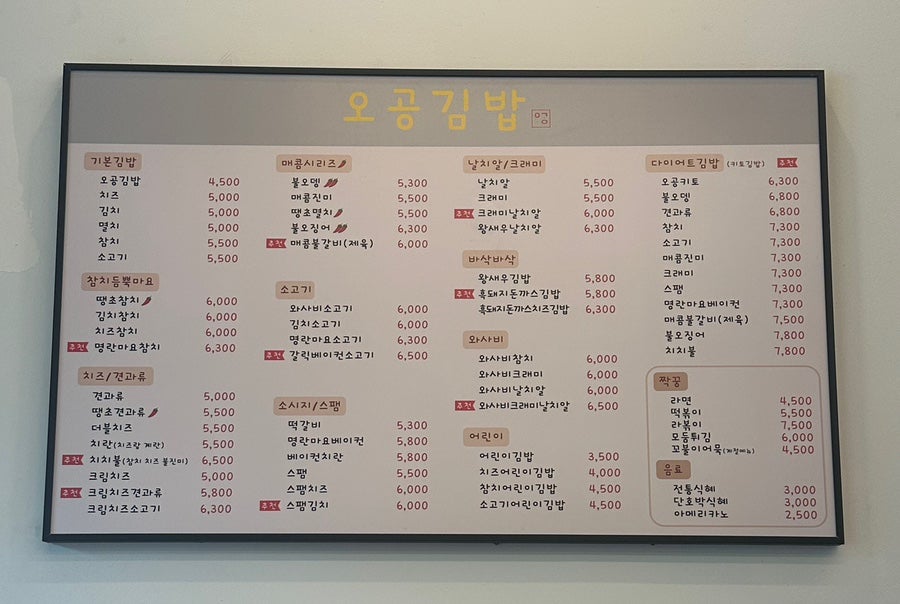 오공김밥
기본김밥
오공김밥 4,500
치즈 5,000
김치 5,000
멸치 5,000
참치 5,500
소고기 5,500
참치듬뿍마요
땡초참치 6,000
김치참치 6,000
치즈참치 6,000
추천 명란마요참치 6,300
치즈/견과류
견과류 5,000
땡초견과류 5,500
더블치즈 5,500
치란(치즈랑 계란) 5,500
추천 치치불(참치 치즈 불진미) 6,500
크림치즈 5,000
추천 크림치즈견과류 5,800
크림치즈소고기 6,300
매콤시리즈
불오뎅 5,300
매콤진미 5,500
땡초멸치 5,500
불오징어 6,300
추천 매콤불갈비(제육) 6,000
소고기
와사비소고기 6,000
김치소고기 6,000
명란마요소고기 6,300
추천 갈릭베이컨소고기 6,500
소시지/스팸
떡갈비 5,300
명란마요베이컨 5,800
베이컨치란 5,800
스팸 5,500
스팸치즈 6,000
추천 스팸김치 6,000
날치알/크래미
날치알 5,500
크래미 5,500
추천 크래미날치알 6,000
왕새우날치알 6,300
바삭바삭
왕새우김밥 5,800
추천 흑돼지돈까스김밥 5,800
흑돼지돈까스치즈김밥 6,300
와사비
와사비참치 6,000
와사비크래미 6,000
와사비날치알 6,000
추천 와사비크래미날치알 6,500
어린이
어린이김밥 3,500
치즈어린이김밥 4,000
참치어린이김밥 4,500
소고기어린이김밥 4,500
다이어트김밥 (키토김밥) 추천
오공키토 6,300
불오뎅 6,800
견과류 6,800
참치 7,300
소고기 7,300
매콤진미 7,300
크래미 7,300
스팸 7,300
명란마요베이컨 7,300
매콤불갈비(제육) 7,500
불오징어 7,800
치치불 7,800
짝꿍
라면 4,500
떡볶이 5,500
라볶이 7,500
모둠튀김 6,000
꼬불이어묵(계절메뉴) 4,500
음료
전통식혜 3,000
단호박식혜 3,000
아메리카노 2,500